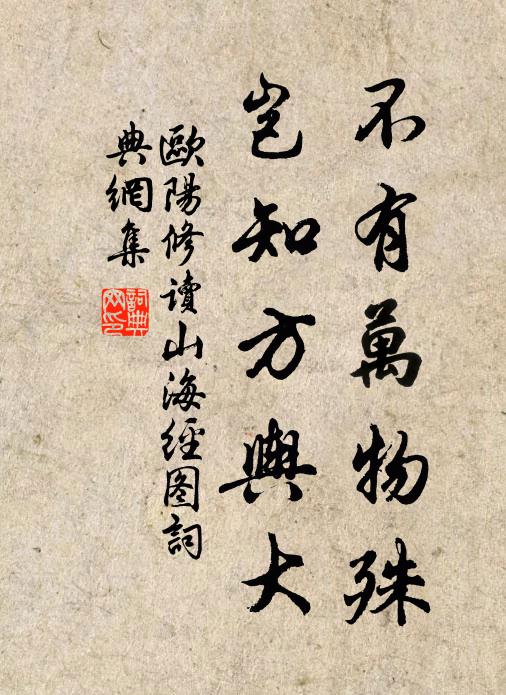 不有萬物殊
豈知方輿大
歐陽修讀山海經图詞
典網集
詞典网印